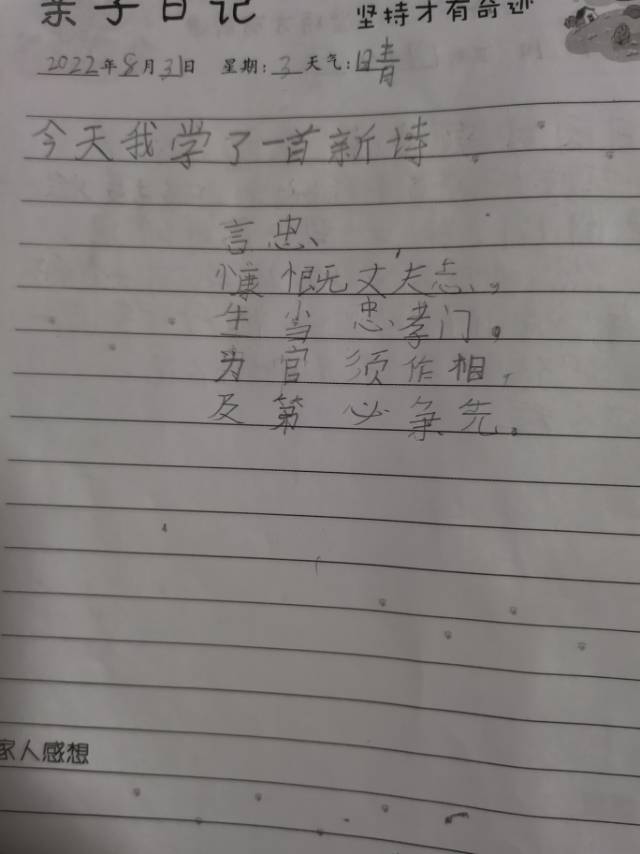 亲子日记
坚持才有奇迹
2022年8月31日 星期:3天气:晴
今天我学了一首新诗
言忠、
慷慨丈夫志,
生当忠孝门。
为官须作相,
及第必争先。
家人感想